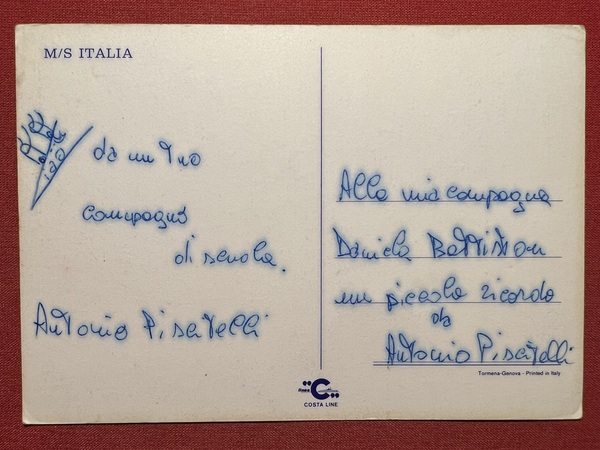 M/S ITALIA
da un tuo
compagno
di scuola.
Antonio Piscitelli
Alla mia compagna
Daniela Battiston
un piccolo ricordo
da
Antonio Piscitelli
Tormena-Genova - Printed in Italy
C
COSTA LINE